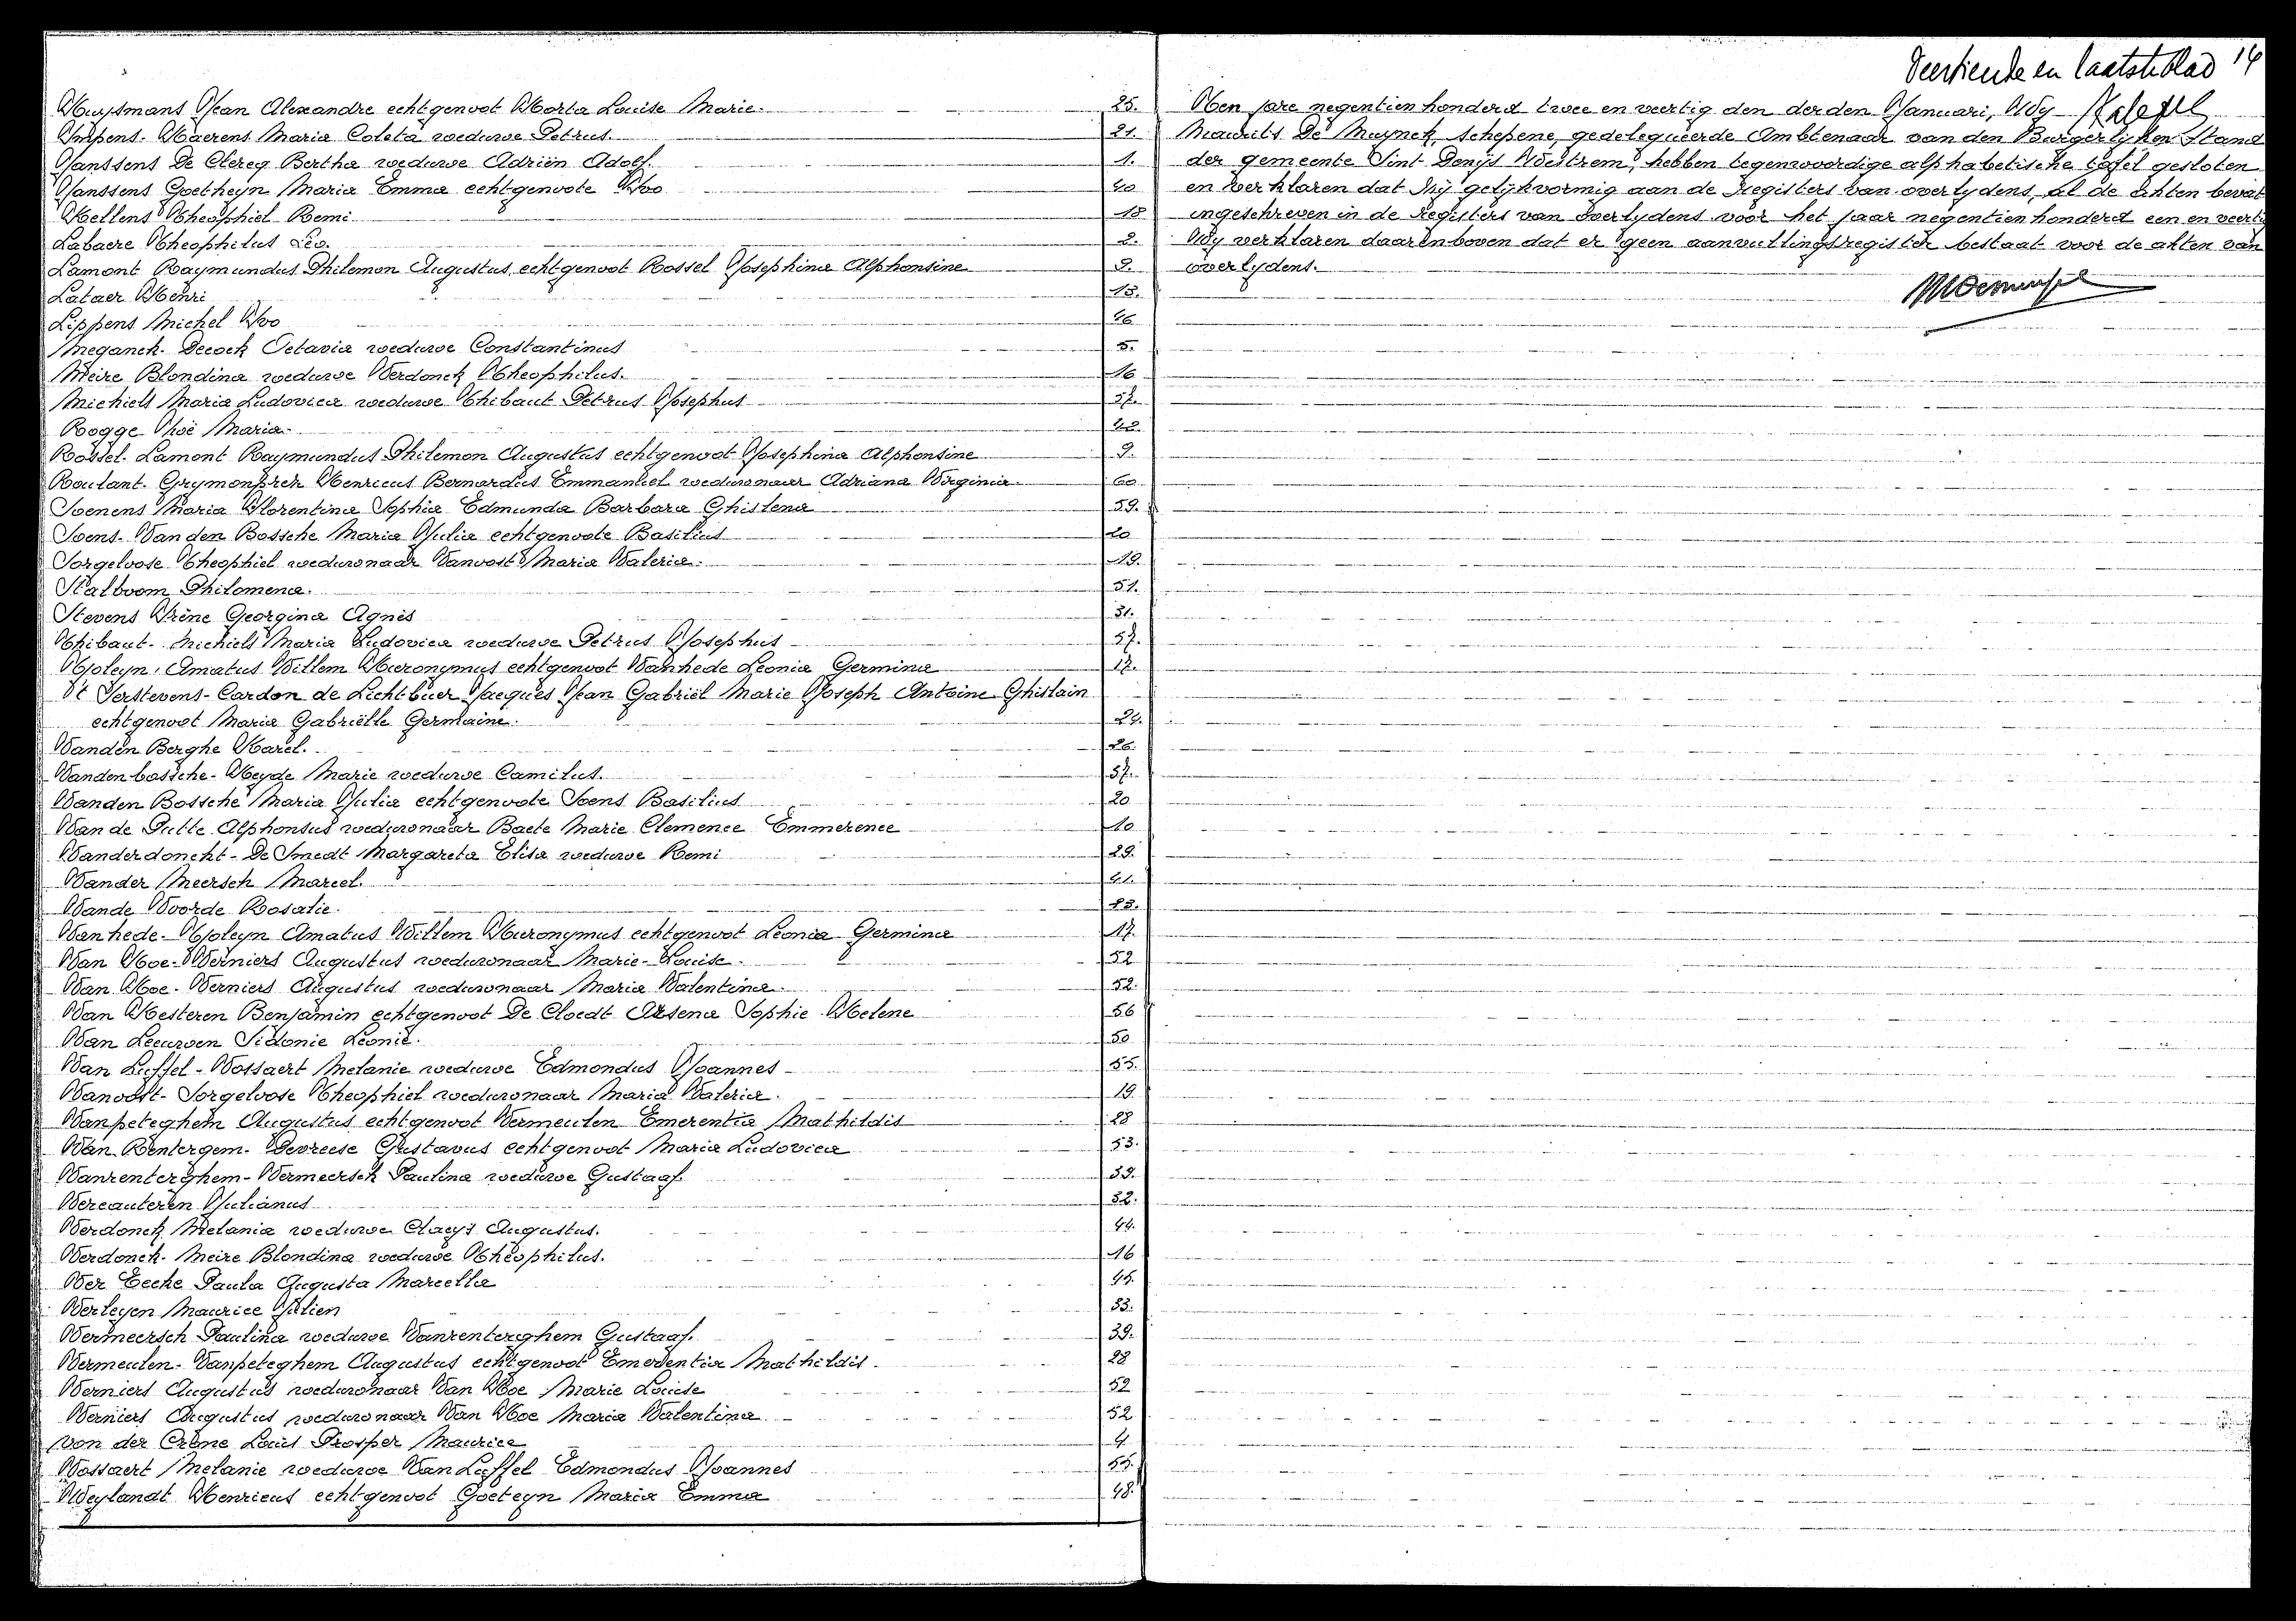 Veertiende en laatste blad 14
Huysmans Jean Alexandre echtgenoot Horta Louise Marie. 25.
Impens-Haerens Maria Coleta weduwe Petrus 21.
Janssens De Clercq Bertha weduwe Adrien Adolf. 1.
Janssens Goetheyn Maria Emma echtgenoote Ivo 40
Kellens Theophiel Remi 18
Labaere Theophilus Leo. 2.
Lamont Raymundus Philemon Augustus echtgenoot Rossel Josephina Alphonsine 9.
Lataer Henri 15.
Lippens Michel Ivo 46
Meganck-Decock Octavia weduwe Constantinus 5.
Meire Blondina weduwe Verdonck Theophilus. 16
Michiels Maria Ludovica weduwe Thibaut Petrus Josephus 57.
Rogge Maria.
Rossel-Lamont Raymundus Philemon Augustus echtgenoot Josephina Alphonsine 9.
Roulant-Grymonprez Henricus Bernardus Emmanuel weduwnaar Adriana Virginia. 60
Soenens Maria Florentina Sophia Edmunda Barbara Ghislena 59.
Soens-Van den Bossche Maria Julia echtgenoote Basilius 20
Sorgeloose Theophiel weduwnaar Vanoost Maria Valeria. 19.
Stalboom Philomena. 51.
Stevens Irène Georgina Agnès 31.
Thibaut-Michiels Maria Ludovica weduwe Petrus Josephus 57.
Tjoleyn Amatus Willem Hieronymus echtgenoot Vanhede Leonia Germina 17.
't Serstevens-Cardon de Lichtbuer Jacques Jean Gabriël Marie Joseph Antoine Ghislain
echtgenoot Maria Gabriëlle Germaine. 24.
Vanden Berghe Karel. 26.
Vandenbossche-Heyde Marie weduwe Camilus. 37.
Vanden Bossche Maria Julia echtgenoote Soens Basilius 20
Van de Putte Alphonsus weduwnaar Baete Marie Clemence Emmerence 10
Vanderdonckt-De Smedt Margareta Elisa weduwe Remi 29.
Vander Meersch Marcel. 41.
Vande Voorde Rosalie.
Vanhede-Tjoleyn Amatus Willem Hieronymus echtgenoot Leonia Germina 17.
Van Hoe-Verniers Augustus weduwnaar Marie-Louise. 52
Van Hoe-Verniers Augustus weduwnaar Maria Valentina. 52.
Van Hesteren Benjamin echtgenoot De Cloedt Arsena Sophie Helene 56
Van Leeuwen Sidonie Leonie. 50
Van Luffel-Vossaert Melanie weduwe Edmondus Joannes 55.
Vanoost-Sorgeloose Theophiel weduwnaar Maria Valeria. 19.
Vanpeteghem Augustus echtgenoot Vermeulen Emerentia Mathildis 28
Van Rentergem-Devreese Gustavus echtgenoot Maria Ludovica 53.
Vanrenterghem-Vermeersch Paulina weduwe Gustaaf. 39.
Vercauteren Julianus 32.
Verdonck Melania weduwe Claeys Augustus. 44.
Verdonck-Meire Blondina weduwe Theophilus. 16
Ver Eecke Paula Augusta Marcella 45.
Verleyen Maurice Julien 33.
Vermeersch Paulina weduwe Vanrenterghem Gustaaf. 39.
Vermeulen-Vanpeteghem Augustus echtgenoot Emerentia Mathildis 28
Verniers Augustus weduwnaar Van Hoe Marie Louise 52
Verniers Augustus weduwnaar Van Hoe Maria Valentina 52
von der Crone Louis Prosper Maurice 4.
Vossaert Melanie weduwe Van Luffel Edmondus Joannes 55.
Weylandt Henricus echtgenoot Goeteyn Maria Emma 48.
Ten jare negentien honderd twee en veertig den derden Januari, Wij
Maurits De Muynck, schepene, gedelegueerde Ambtenaar van den Burgerlijken Stand
der gemeente Sint Denijs Westrem, hebben tegenwoordige alphabetische tafel gesloten
en verklaren dat zij gelijkvormig aan de Registers van overlydens, al de akten bevat
ingeschreven in de Registers van overlydens voor het jaar negentien honderd een en veertig
Wij verklaren daarenboven dat er geen aanvullingsregister bestaat voor de akten van
overlydens.